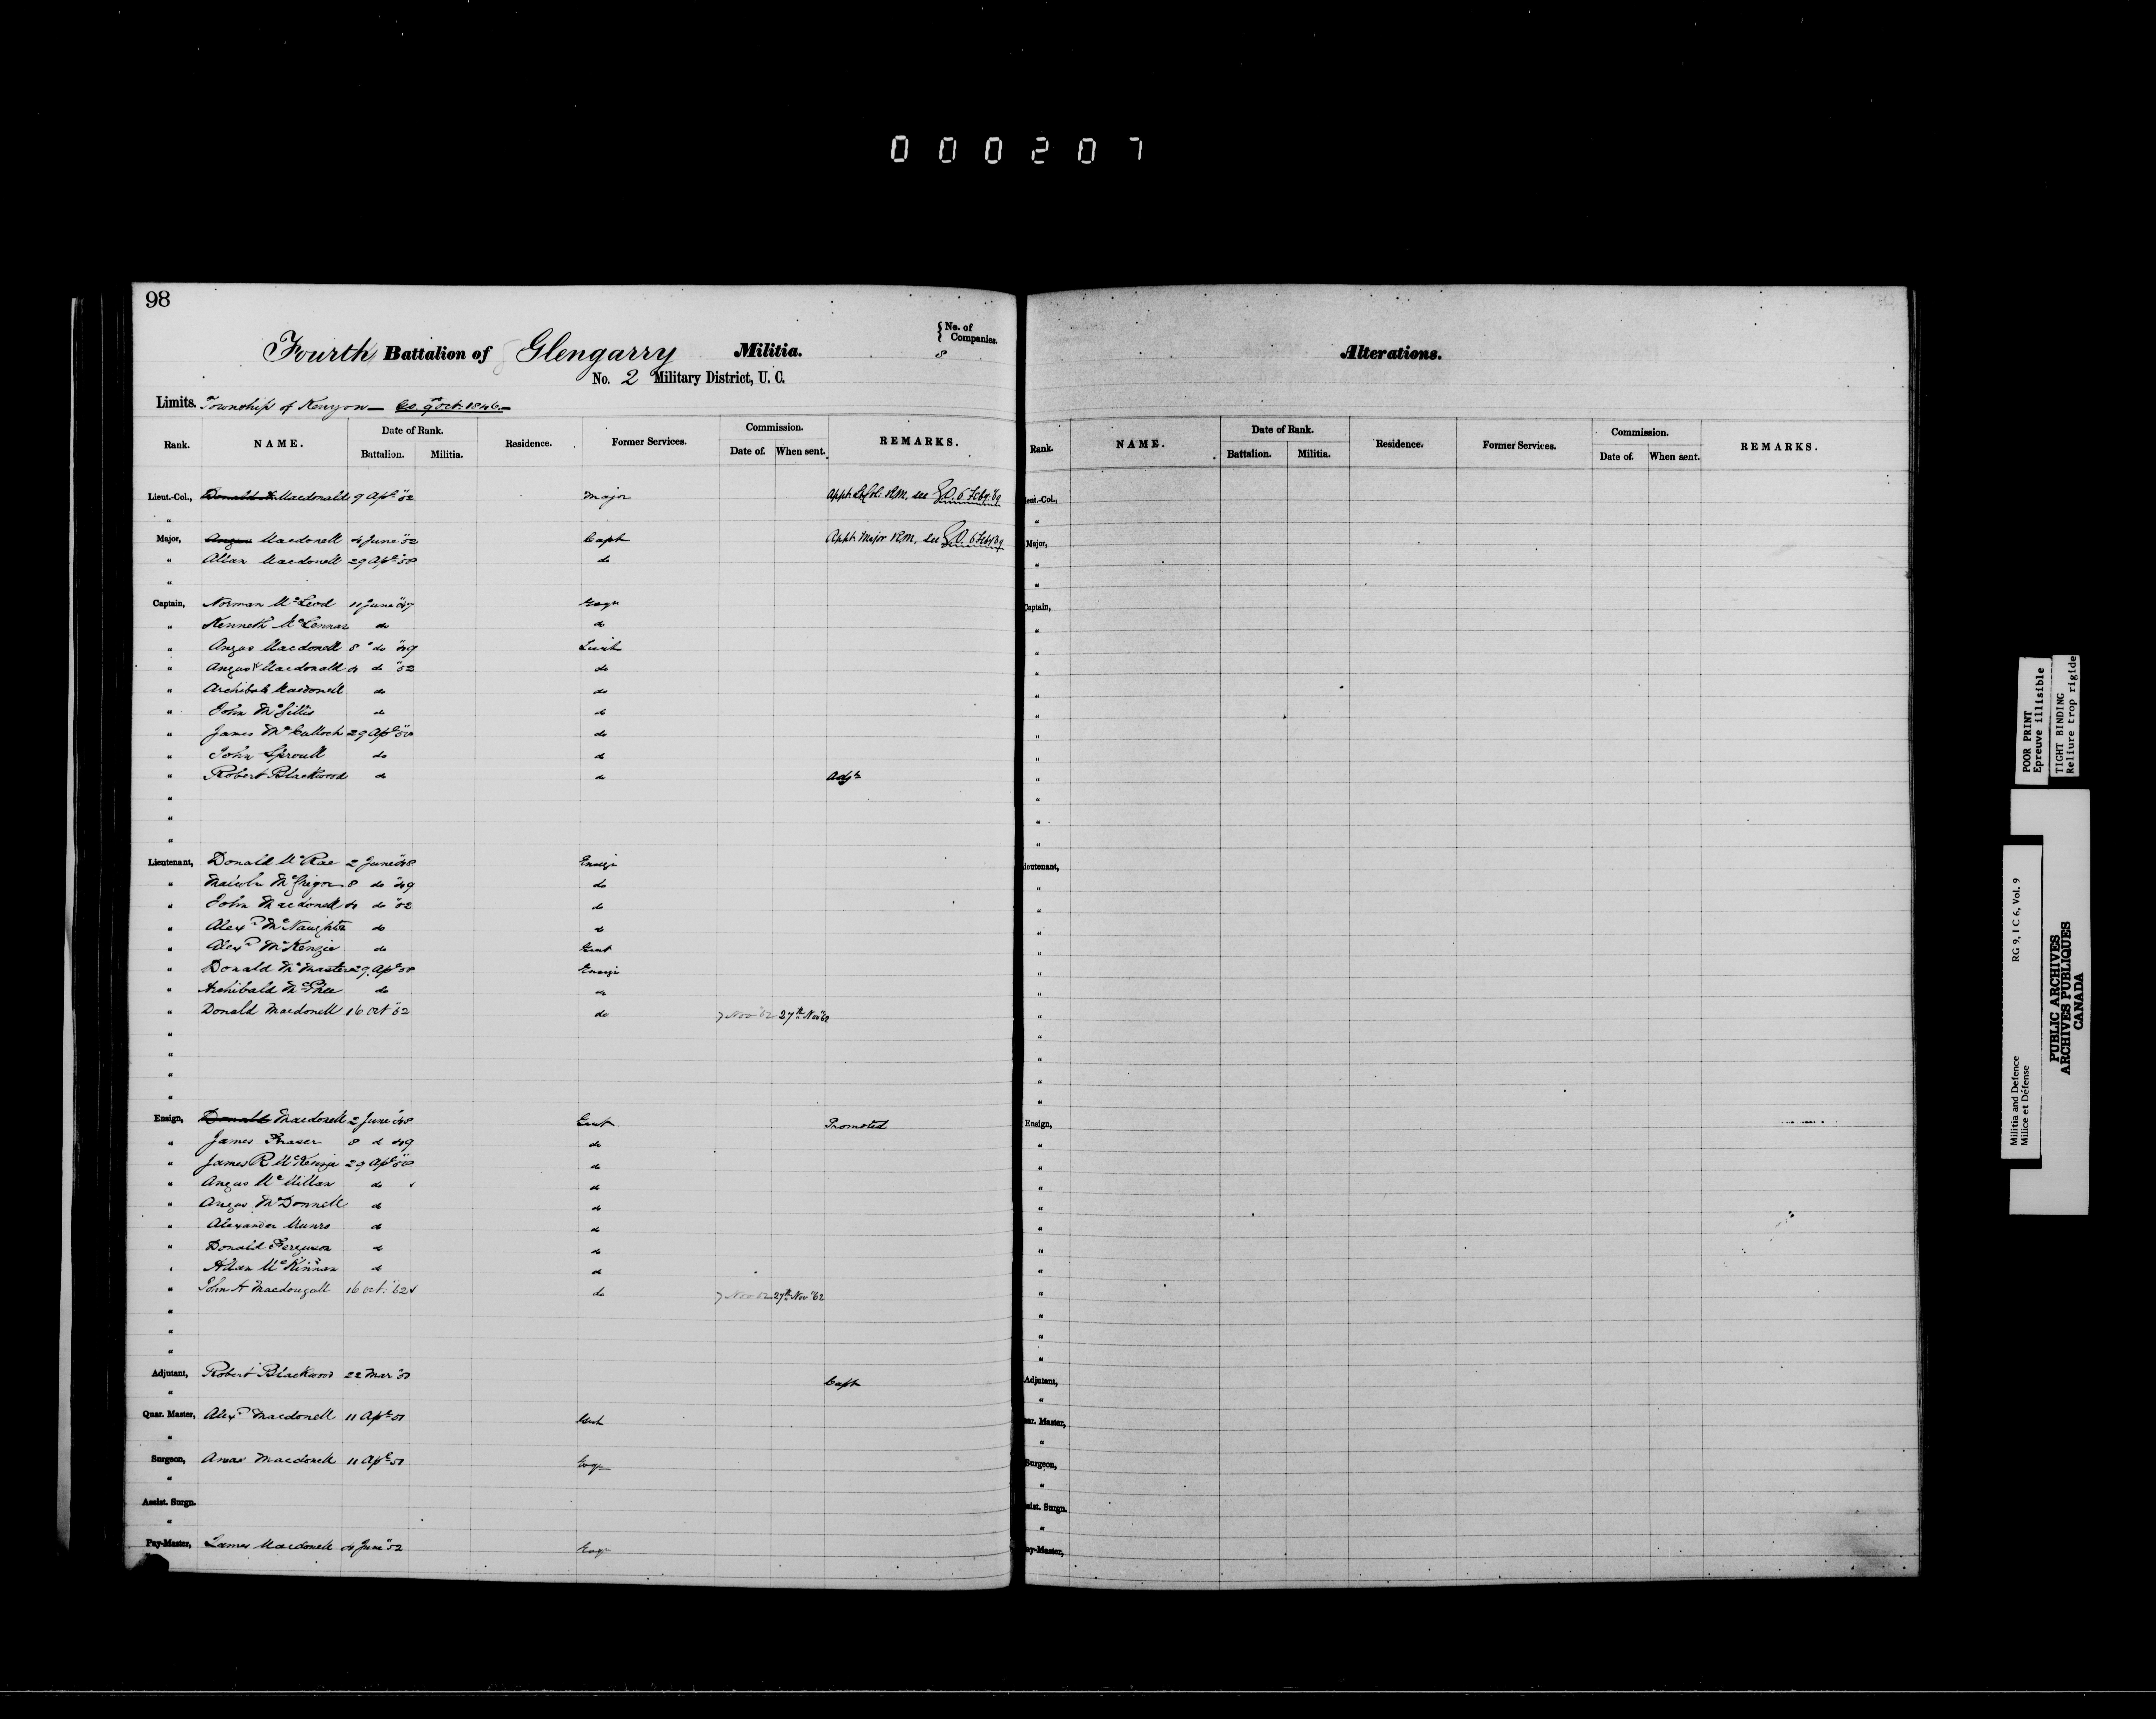 000207
98
{ No. of Companies.
8
Fourth Battalion of Glengarry Militia.
No. 2 Military District, U. C.
Limits. Township of Kenyon — G.O. 9 Oct. 1846 —
Rank. NAME. Date of Rank. Residence. Former Services. Commission. REMARKS.
Battalion. Militia. Date of. When sent.
Lieut.-Col., Donald Macdonald 9 Apl "52 Major Appt. Lt. Col. R.M. see G.O. 6 Feby. 69
"
Major, Angus Macdonell 4 June "52 Capt Appt. Major R.M. see G.O. 6 Feby 69
" Allan Macdonell 29 Apl "58 do
"
Captain, Norman McLeod 11 June "47 Esqr
" Kenneth McLennan do do
" Angus Macdonell 8 " do "49 Lieut
" Angus Macdonald 4 do "52 do
" Archibald Macdonell do do
" John McGillis do do
" James McCulloch 29 Apl "58 do
" John Sproull do do
" Robert Blackwood do do Adjt
"
"
"
Lieutenant, Donald McRae 2 June "48 Ensign
" Malcolm McGrigor 8 do "49 do
" John Macdonell 4 do "52 do
" Alexr McNaughton do do
" Alexr McKenzie do Gent
" Donald McMaster 29 Apl "58 Ensign
" Archibald McPhee do do
" Donald Macdonell 16 Oct "62 do 7 Nov "62 27th Nov "62
"
"
"
"
Ensign, Donald Macdonell 2 June "48 Gent Promoted
" James Fraser 8 d "49 do
" James R McKenzie 29 Apl "58 do
" Angus McMillan do do
" Angus McDonnell do do
" Alexander Munro do do
" Donald Ferguson do do
" Allan McKinnan do do
" John A Macdougall 16 Oct. "62 do 7 Nov 62 27th Nov "62
"
"
"
Adjutant, Robert Blackwood 22 Mar Capt
"
Quar. Master, Alexr Macdonell 11 Apl Gent
"
Surgeon, Macdonell 11 Apl Esqr
"
Assist. Surgn.
"
Pay-Master, James Macdonell 4 June "52 Esqr
Alterations.
Rank. NAME. Date of Rank. Residence. Former Services. Commission. REMARKS.
Battalion. Militia. Date of. When sent.
ieut.-Col.,
"
Major,
"
"
Captain,
"
"
"
"
"
"
"
"
"
"
"
ieutenant,
"
"
"
"
"
"
"
"
"
"
"
Ensign,
"
"
"
"
"
"
"
"
"
"
"
Adjutant,
"
uar. Master,
"
Surgeon,
"
sist. Surgn.
"
ay-Master,
POOR PRINT
Epreuve illisible
TIGHT BINDING
Reliure trop rigide
Militia and Defence RG 9, I C 6, Vol. 9
Milice et Défense
PUBLIC ARCHIVES
ARCHIVES PUBLIQUES
CANADA